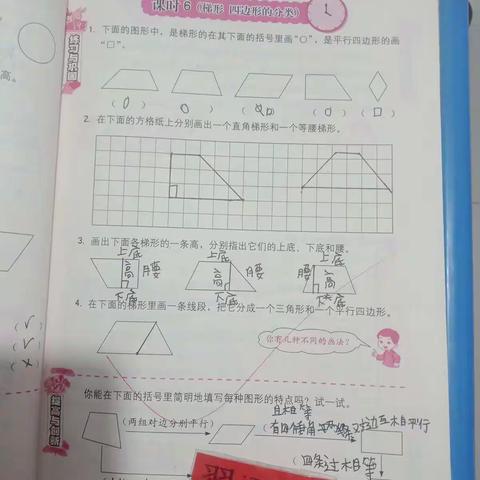 课时6（梯形 四边形的分类）
练习与巩固
1. 下面的图形中，是梯形的在其下面的括号里画“○”，是平行四边形的画
“□”。
高。
2. 在下面的方格纸上分别画出一个直角梯形和一个等腰梯形。
3. 画出下面各梯形的一条高，分别指出它们的上底、下底和腰。
上底 上底 上底
高 腰 高 腰 腰 高
下底 下底 下底
4. 在下面的梯形里画一条线段，把它分成一个三角形和一个平行四边形。
(√)
(√)
(×)
你有几种不同的画法？
你能在下面的括号里简明地填写每种图形的特点吗？试一试。
且相等
(两组对边分别平行)
对边互相平行
(四条边相等